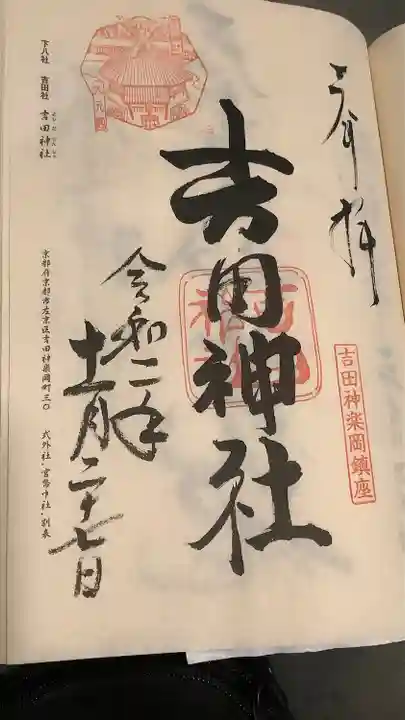 奉拝
吉田神社
吉田神楽岡鎮座
令和二年
十一月二十七日
下八社 吉田社 吉田神社
京都府京都市左京区吉田神楽岡町三〇 式外社・官幣中社・別表